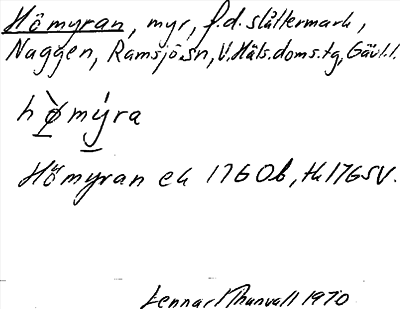 Hömyran, myr, f.d. slåttermark,
Naggen, Ramsjö sn, V. Häls. doms. tg, Gävl. l.
hø̀mýra
Hömyran ek 17G Ob, tk 17G SV.
Lennart Thunvall 1970